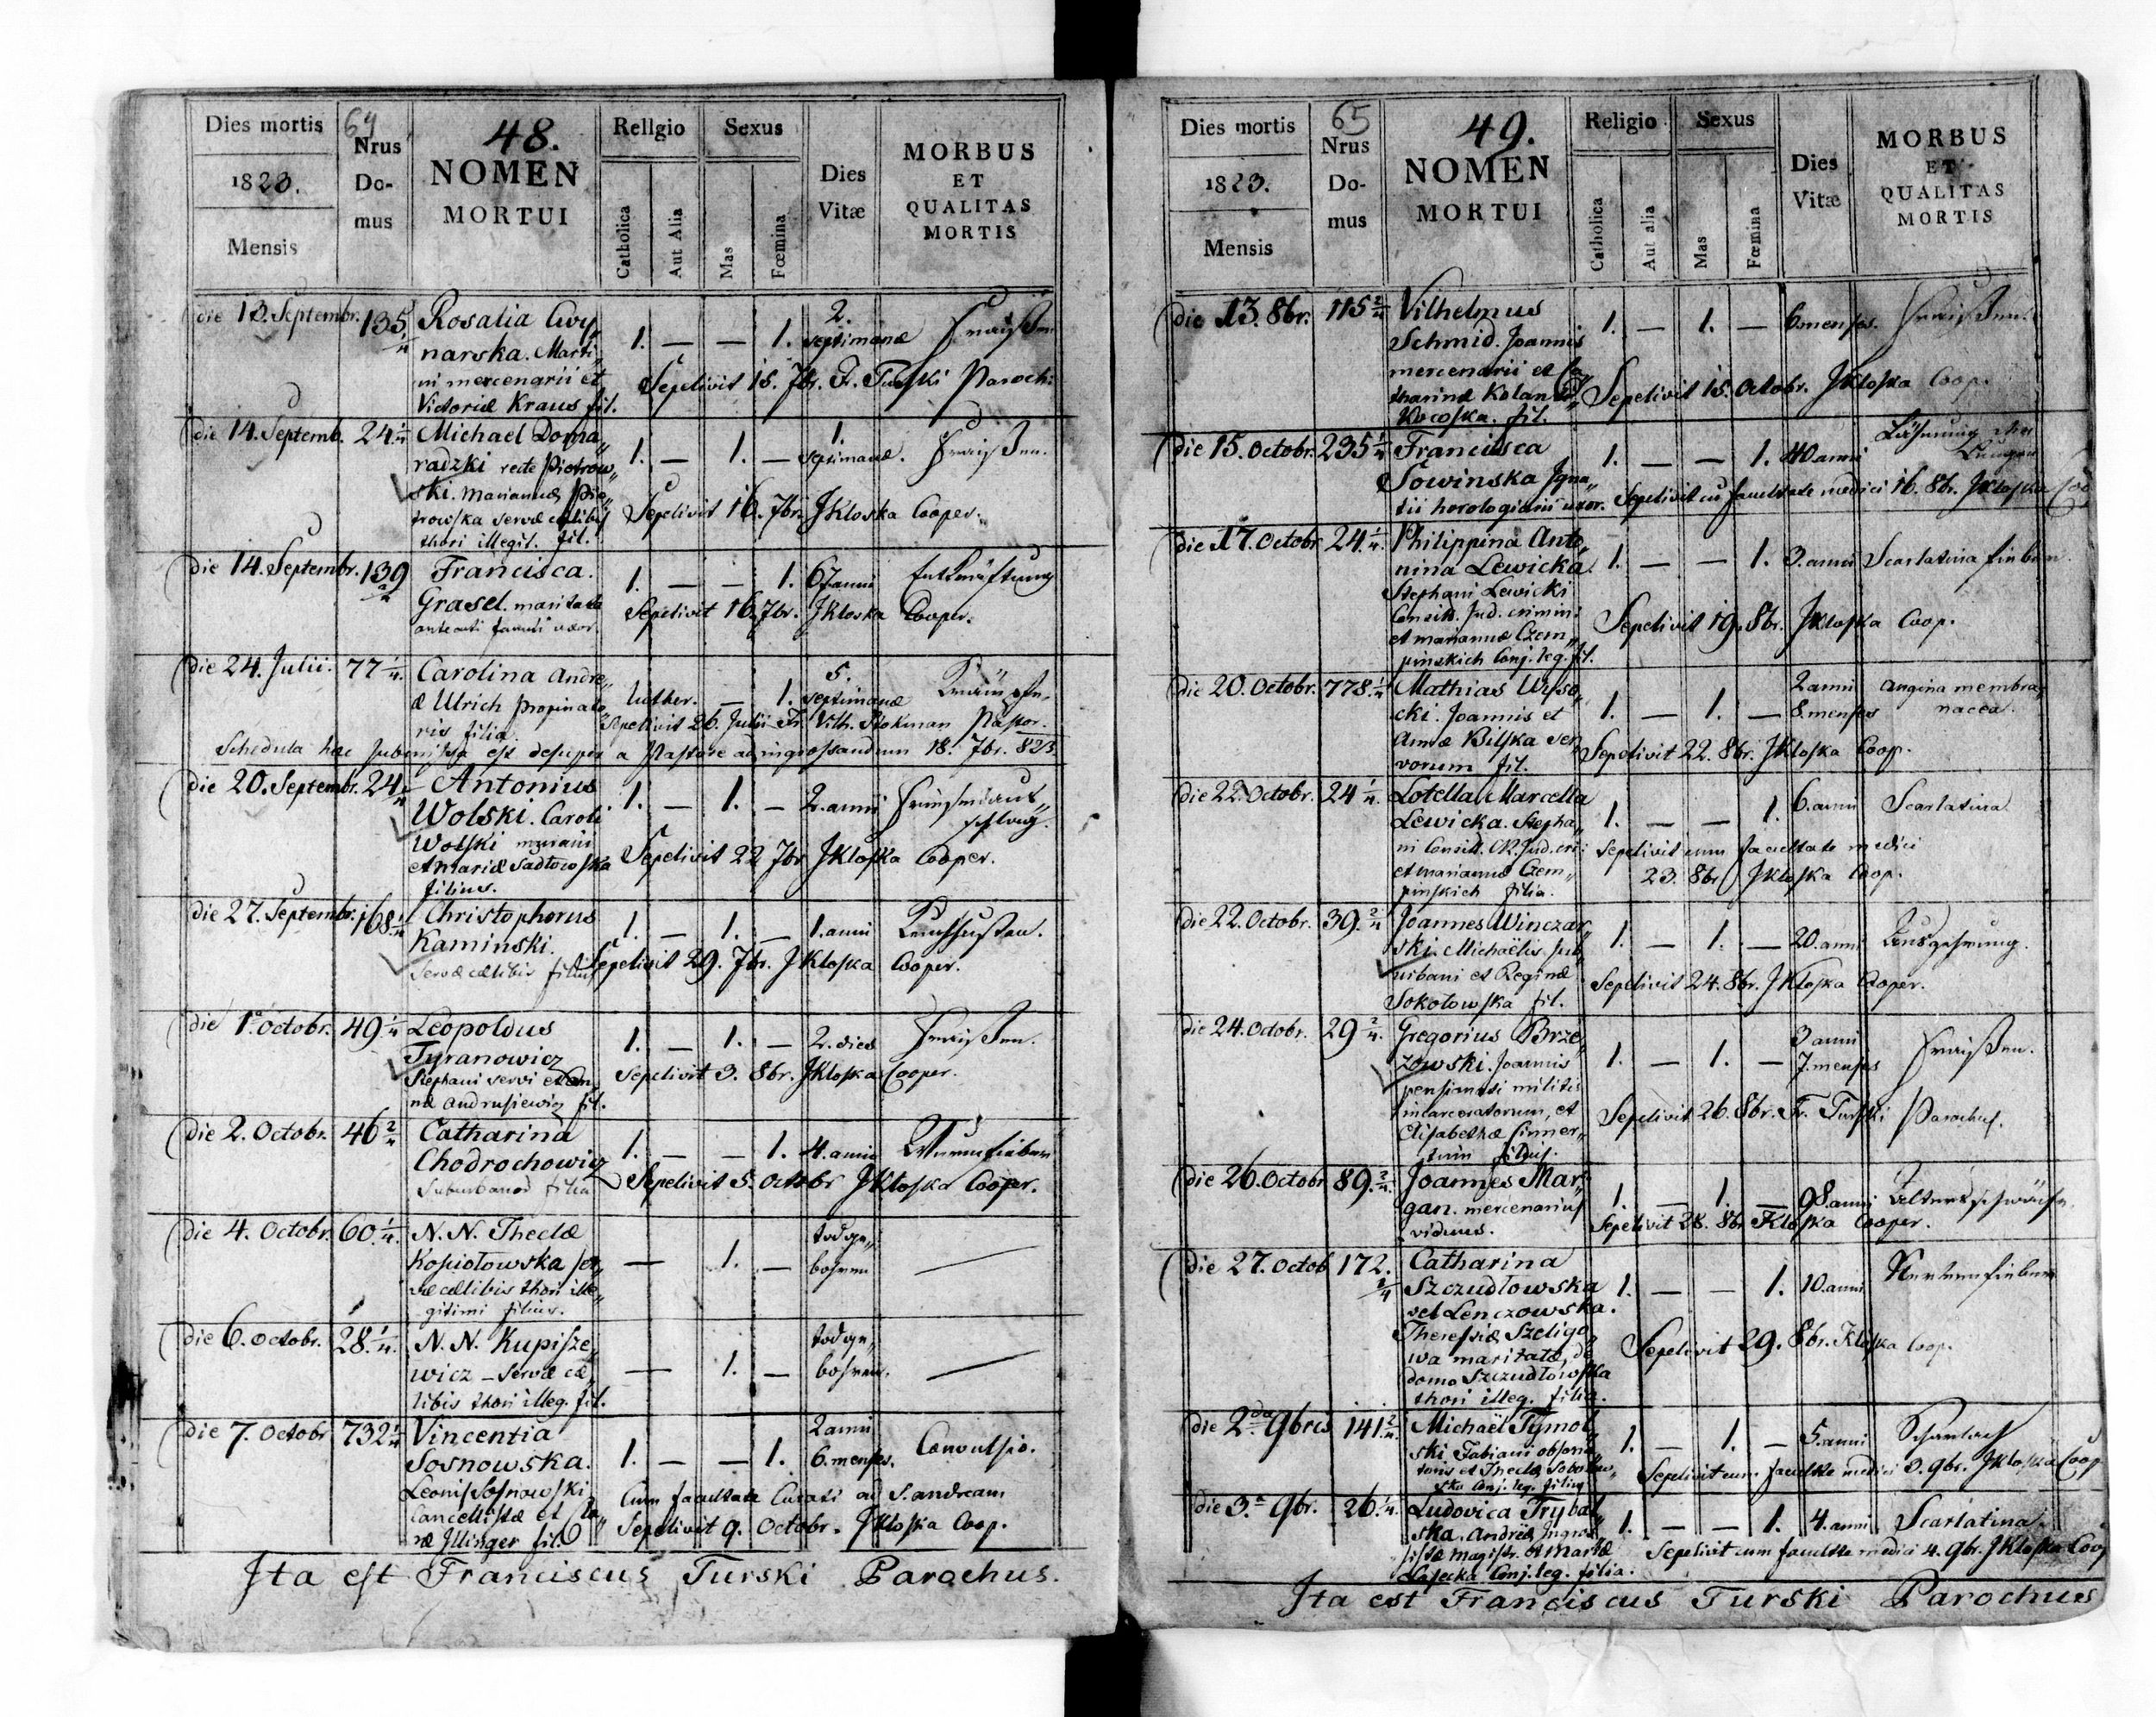 Dies mortis
1823.
Mensis
64
Nrus
Do-
mus
48.
NOMEN
MORTUI
Religio
Catholica
Aut Alia
Sexus
Mas
Fœmina
Dies
Vitæ
MORBUS
ET
QUALITAS
MORTIS
die 13. Septembr. 135
Rosalia Cwy„
narska. Marti„
ni mercenarii et
Victoriæ Kraus fil.
1. — — 1.
2.
septimanæ
Fraißen
Sepelivit 15. 7br. Fr. Turski Paroch:
die 14. Septemb. 24. 1/4
Michael Doma„
radzki recte Piotrow„
ski. Mariannæ Pio„
trowska servæ cælibis
thori illegit. fil.
1. — 1. —
1.
septimanæ.
Fraißen.
Sepelivit 16. 7br. JKloska Cooper.
die 14. Septembr. 139
Francisca.
Grasel. maritata
uxor.
1. — — 1. 67 anni
Entkräftung
Sepelivit 16. 7br. JKloska Cooper.
die 24. Julii. 77 1/4.
Carolina Andre„
æ Ulrich propinato„
ris filia.
luther. — 1.
5.
septimanæ
Krämpfe.
Sepelivit 26. Julii Fr. Vilh. Stokman Pastor.
Schedula hæc submissa est desuper a Pastore ad ingrossandum 18. 7br. 823.
die 20. Septembr. 24.
Antonius
Wolski. Caroli
Wolski
et Mariæ Sadłowska
filius.
1. — 1. — 2. anni
Sepelivit 22 7br JKloska Cooper.
die 27. Septembr. 168. 1/4
Christophorus
Kaminski.
Servæ cælibis filius
1. — 1. — 1. anni
Keuchhusten.
Sepelivit 29. 7br. JKloska Cooper.
die 1a Octobr. 49 1/4
Leopoldus
Tyranowicz
Stephani servi et An„
næ Andrusiewicz fil.
1. — 1. — 2. dies
Fraißen.
Sepelivit 3. 8br. JKloska Cooper.
die 2. Octobr. 46 2/4
Catharina
Chodrochowicz
Suburbanor filia
1. — — 1. 4. anni
Wurmfieber
Sepelivit 5. Octobr JKloska Cooper.
die 4. Octobr. 60. 1/4.
N. N. Theclæ
Kopiotowska ser„
væ cælibis thori ille„
gitimi filius.
— 1. —
todge„
bohren
—
die 6. Octobr. 28. 1/4.
N. N. Kupisze„
wicz – Servæ cæ„
libis thori illeg. fil.
— 1. —
todge„
bohren.
—
die 7. Octobr 732 1/4
Vincentia
Sosnowska.
Leonis Sosnowski
Cancellistæ et Cla„
ræ Illinger fil.
1. — — 1.
2 anni
6. menses.
Convulsio.
Cum facultate Curati ad S. Andream
Sepelivit 9. Octobr. JKloska Coop.
Ita est Franciscus Turski Parochus.
Dies mortis
1823.
Mensis
65
Nrus
Do-
mus
49.
NOMEN
MORTUI
Religio
Catholica
Aut alia
Sexus
Mas
Fœmina
Dies
Vitæ
MORBUS
ET
QUALITAS
MORTIS
die 13. 8br. 115 2/4
Vilhelmus
Schmid. Joannis
mercenarii et Ca„
tharinæ
Kocoska. fil.
1. — 1. — 6. menses.
Fraißen.
Sepelivit 15. Octobr. JKloska Coop.
die 15. Octobr. 235 1/4
Francisca
Sowinska Igna„
tii horologiarii uxor.
1. — — 1. 40 anni
Lähmung der
Lungen
Sepelivit cu facultate medici 16. 8br. JKloska Coo
die 17. Octobr. 24. 1/4.
Philippina Anto„
nina Lewicka.
Stephani Lewicki
Consill. Jud. crimin:
et Mariannæ Czem„
pinskich Conj. leg. fil.
1. — — 1. 3. anni
Scarlatina fieber.
Sepelivit 19. 8br. JKloska Coop.
die 20. Octobr. 778. 1/4
Mathias Wyso„
cki. Joannis et
Annæ Bilska ser„
vorum fil.
1. — 1. —
2 anni
8. menses
angina membra„
nacea.
Sepelivit 22. 8br. JKloska Coop.
die 22. Octobr. 24 1/4.
Lotella Marcella
Lewicka. Stepha„
ni Consill. CR. Jud. cri:
et Mariannæ Czem„
pinskich filia.
1. — — 1. 6. anni
Scarlatina
Sepelivit cum facultate medici
23. 8br JKloska Coop.
die 22. Octobr. 39. 2/4
Joannes Winczar„
ski. Michaëlis sub„
urbani et Reginæ
Sokołowska fil.
1. — 1. — 20. anni
Auszehrung.
Sepelivit 24. 8br. JKloska Cooper.
die 24. Octobr. 29 2/4.
Gregorius Brze„
zowski. Joannis
pensionati militis
incarceratorum, et
Elisabethæ
filius.
1. — 1. —
3 anni
7. menses
Fraißen.
Sepelivit 26. 8br. Fr. Turski Parochus.
die 26. Octobr 89. 2/4.
Joannes Mar„
gan. mercenarius
viduus.
1. — 1. — 98. anni
Altersschwäche.
Sepelivit 28. 8br. JKloska Cooper.
die 27. Octob 172. 2/4
Catharina
Szczudłowska
vel Lenczowska.
Theresiæ Szeligo„
wa maritatæ, de
domo Szczudłowska
thori illeg. filia.
1. — — 1. 10. anni
Nervenfieber
Sepelivit 29. 8br. Kloska Coop.
die 2da 9bris 141. 2/4.
Michaël Tymol„
ski. Fabiani obsona„
toris et Theclæ Sobolew„
ska Conj. leg. filius
1. — 1. — 5. anni
Scharlach
Sepelivit cum facultte medici 3. 9br. JKloska Coop
die 3a 9br. 26. 1/4.
Ludovica Trybal„
ska. Andreæ Ingros„
sistæ Magistr. et Mariæ
Lasecka Conj. leg. filia.
1. — — 1. 4. anni
Scarlatina.
Sepelivit cum facultte medici 4. 9br. JKloska Coop
Ita est Franciscus Turski Parochus